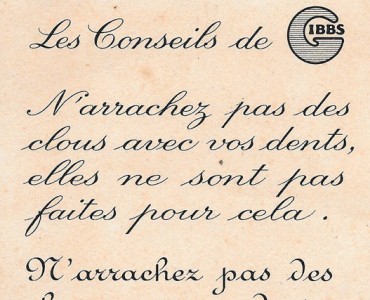 Les Conseils de GIBBS
N'arrachez pas des
clous avec vos dents,
elles ne sont pas
faites pour cela.
N'arrachez pas des